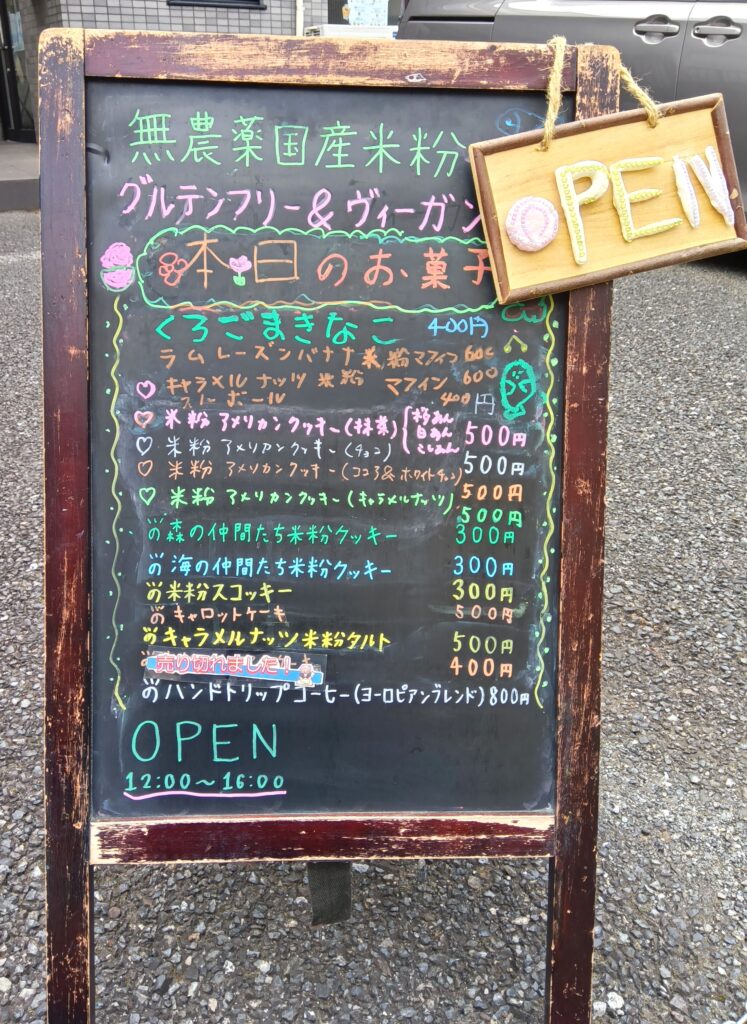 無農薬国産米粉
グルテンフリー&ヴィーガン
OPEN
本日のお菓子
くろごまきなこ 400円
ラムレーズンバナナ米粉マフィン 600
キャラメルナッツ米粉マフィン 600
ボール 400円
米粉アメリカンクッキー(抹茶) 白あん こしあん 500円
米粉アメリカンクッキー(チョコ) 500円
米粉アメリカンクッキー(ココア&ホワイトチョコ) 500円
米粉アメリカンクッキー(キャラメルナッツ) 500円
森の仲間たち米粉クッキー 300円
海の仲間たち米粉クッキー 300円
米粉スコッキー 300円
キャロットケーキ 500円
キャラメルナッツ米粉タルト 500円
売り切れました! 400円
ハンドトリップコーヒー(ヨーロピアンブレンド) 800円
OPEN
12:00~16:00